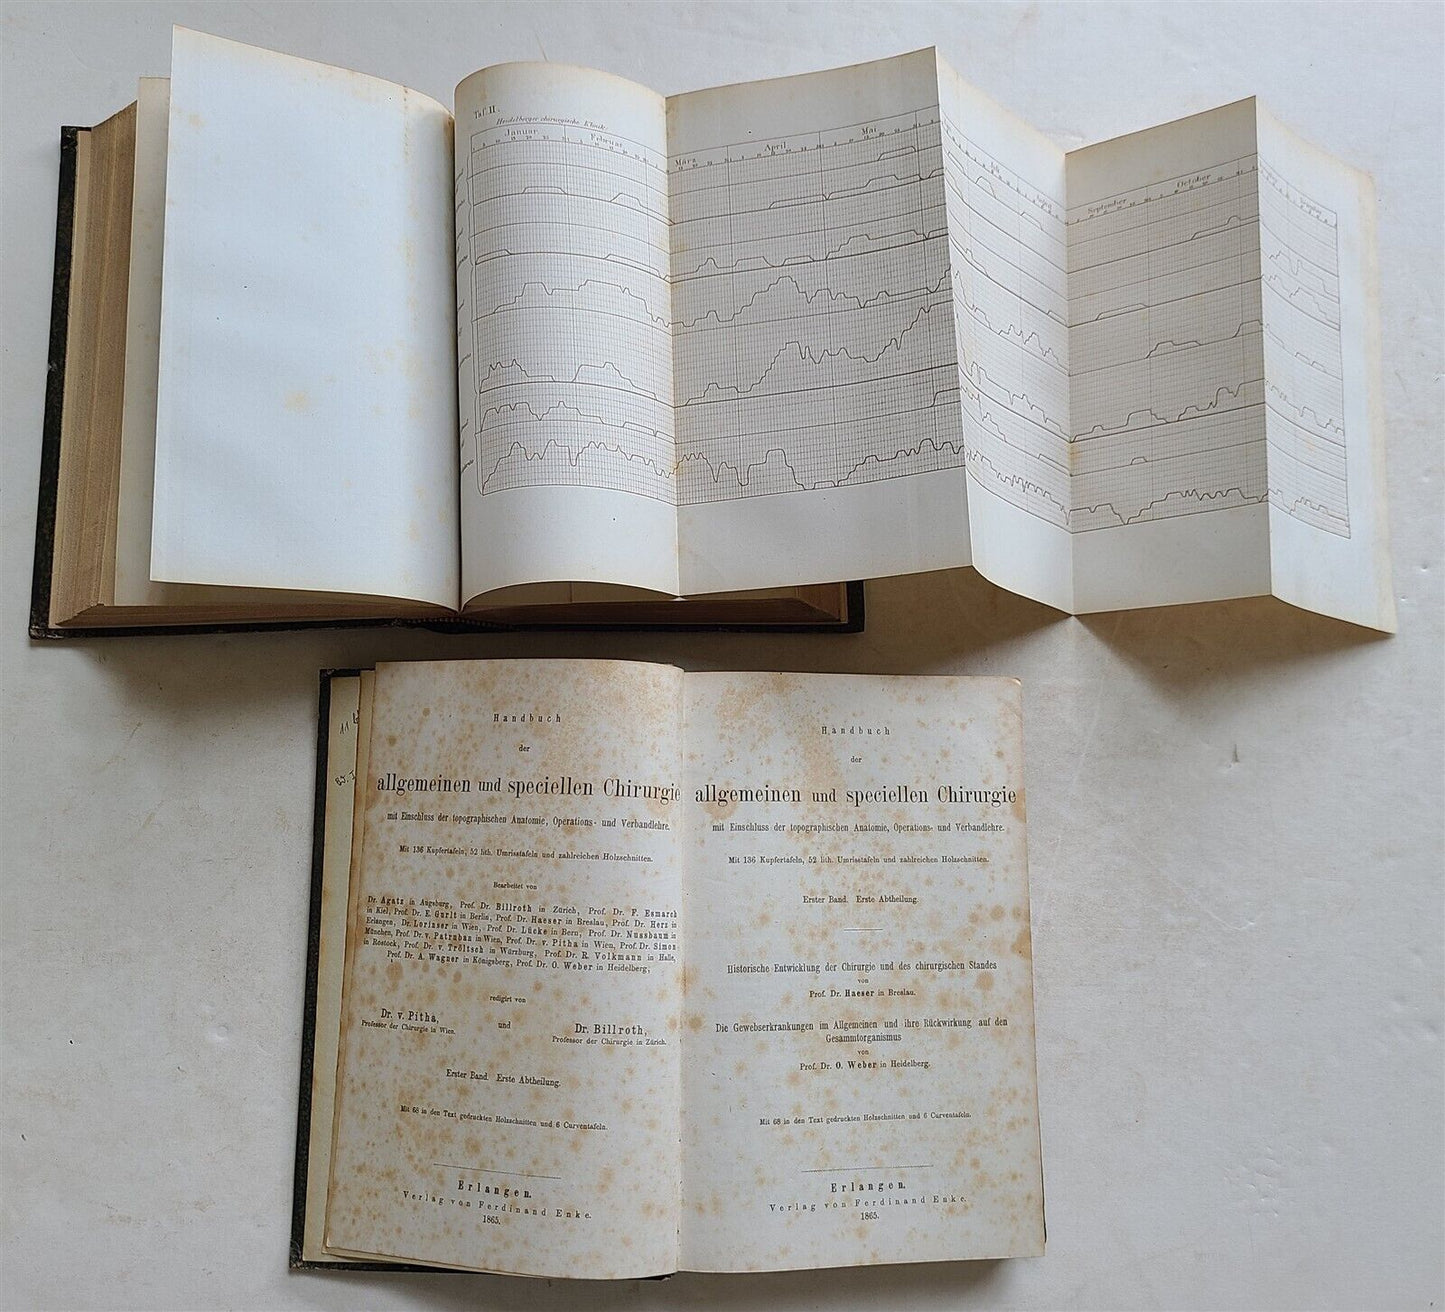 Taf. II.
Heidelberger chirurgische Klinik.
Januar.
Februar.
März
April
Mai
Juli
August
September
October
Handbuch
der
allgemeinen und speciellen Chirurgie
mit Einschluss der topographischen Anatomie, Operations- und Verbandlehre.
Mit 136 Kupfertafeln, 52 lith. Umrisstafeln und zahlreichen Holzschnitten.
Bearbeitet von
Dr. Agatz in Augsburg, Prof. Dr. Billroth in Zürich, Prof. Dr. F. Esmarch
in Kiel, Prof. Dr. E. Gurlt in Berlin, Prof. Dr. Haeser in Breslau, Prof. Dr. Herz in
Erlangen, Dr. Lorinser in Wien, Prof. Dr. Lücke in Bern, Prof. Dr. Nussbaum in
München, Prof. Dr. v. Patruban in Wien, Prof. Dr. v. Pitha in Wien, Prof. Dr. Simon
in Rostock, Prof. Dr. v. Tröltsch in Würzburg, Prof. Dr. R. Volkmann in Halle,
Prof. Dr. A. Wagner in Königsberg, Prof. Dr. O. Weber in Heidelberg,
redigirt von
Dr. v. Pitha,
Professor der Chirurgie in Wien.
und
Dr. Billroth,
Professor der Chirurgie in Zürich.
Erster Band. Erste Abtheilung.
Mit 68 in den Text gedruckten Holzschnitten und 6 Curventafeln.
Erlangen.
Verlag von Ferdinand Enke.
1865.
Handbuch
der
allgemeinen und speciellen Chirurgie
mit Einschluss der topographischen Anatomie, Operations- und Verbandlehre.
Mit 136 Kupfertafeln, 52 lith. Umrisstafeln und zahlreichen Holzschnitten.
Erster Band. Erste Abtheilung.
Historische Entwicklung der Chirurgie und des chirurgischen Standes
von
Prof. Dr. Haeser in Breslau.
Die Gewebserkrankungen im Allgemeinen und ihre Rückwirkung auf den
Gesammtorganismus
von
Prof. Dr. O. Weber in Heidelberg.
Mit 68 in den Text gedruckten Holzschnitten und 6 Curventafeln.
Erlangen.
Verlag von Ferdinand Enke.
1865.